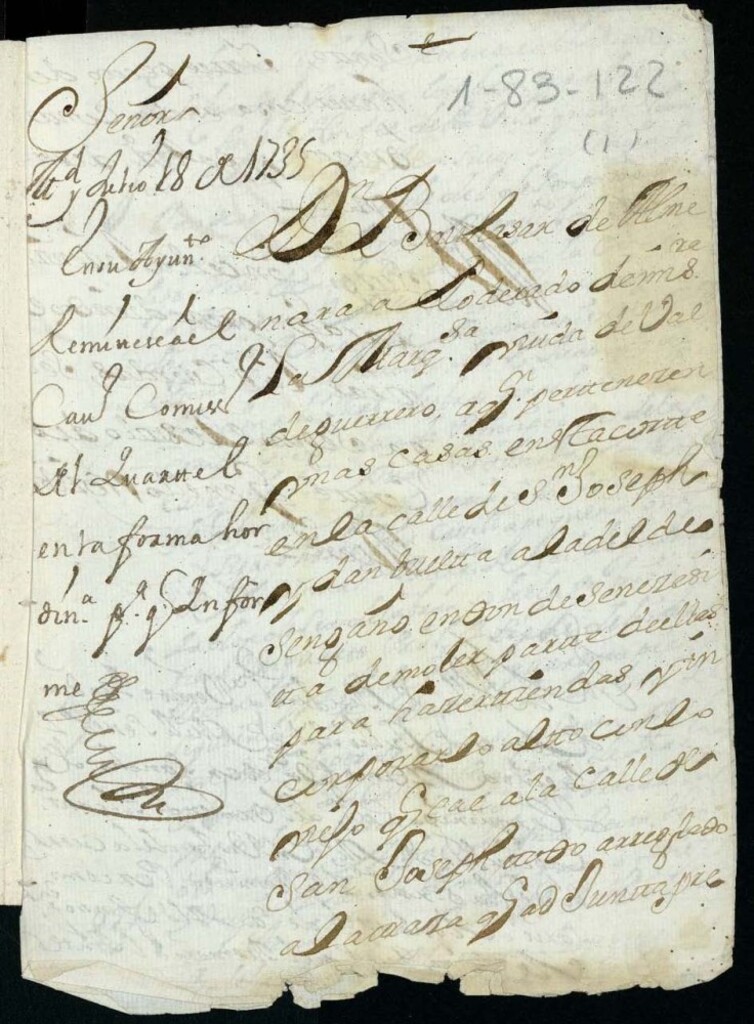 1-83-122
(1)
Señor
Md y Julio 18 de 1735
En su Ayunto
Remitese al
Cavro Comisso
del Quartel
en la forma hor
dina pa q Infor
me
Dn Balthasar de Alme
nara apoderado de ms re
La Marqsa viuda de Val
deguerrero, a qn pertenezen
unas casas en esta corte
en la calle de Sn Joseph
y dan buelta a la del de
sengaño, en donde se nezesi
ta demoler parte de ellas
para hazer tiendas, y in
corporarlo alto con lo
viejo q cae a la calle de
San Joseph todo arreglado
a la traza q ad Junta pre